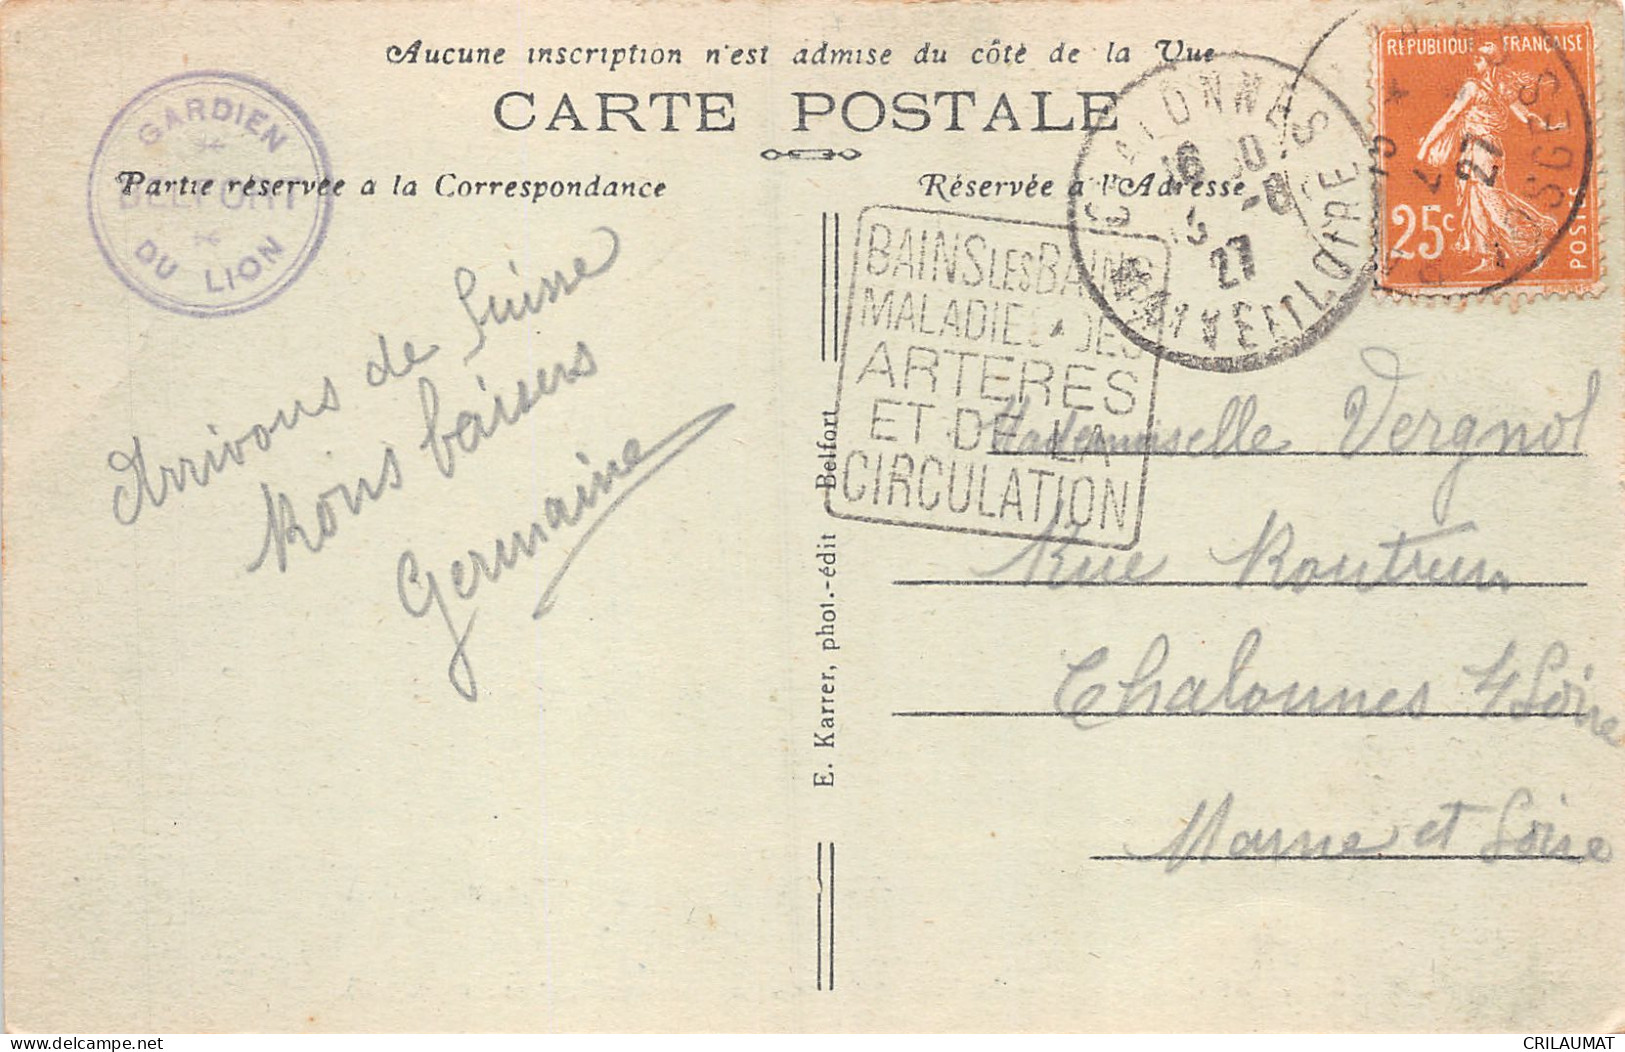 Aucune inscription n'est admise du côté de la Vue
CARTE POSTALE
Partie réservée a la Correspondance
Réservée a l'Adresse
GARDIEN
BELFORT
DU LION
REPUBLIQUE FRANÇAISE
25c
POSTES
CHALONNES
16 30
-8
27
MAINE ET LOIRE
VOSGES
27
BAINS LES BAINS
MALADIES DES
ARTERES
ET DE LA
CIRCULATION
Arrivons de Suisse
Bons baisers
Germaine
E. Karrer, phot.-édit Belfort
Mademoiselle Vergnol
Rue
Chalonnes s/Loire
Maine et Loire
www.delcampe.net
CRILAUMAT